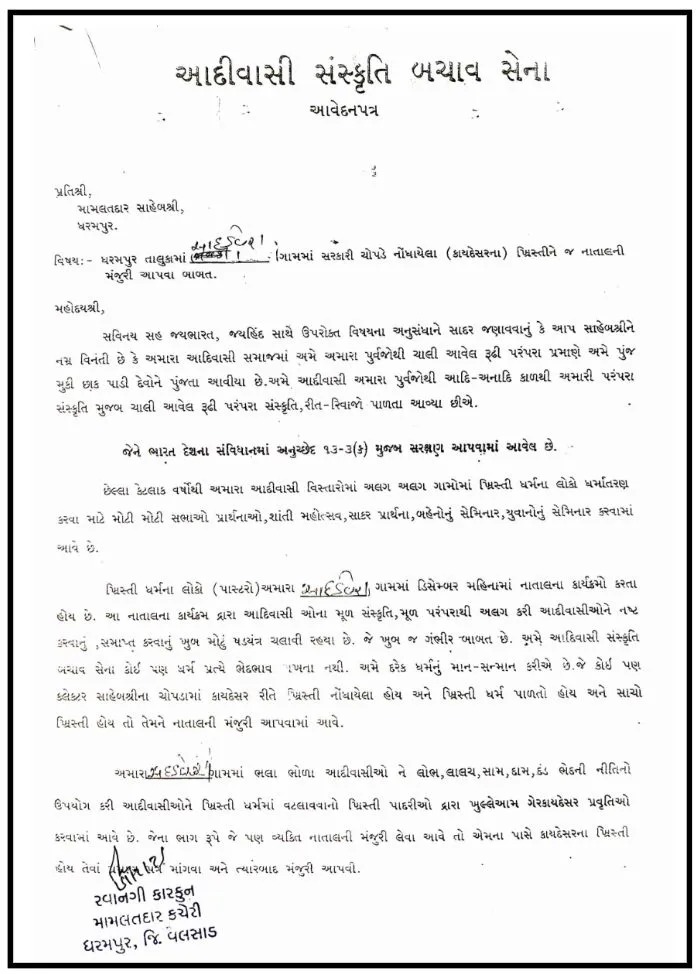 આદીવાસી સંસ્કૃતિ બચાવ સેના
આવેદનપત્ર
પ્રતિશ્રી,
મામલતદાર સાહેબશ્રી,
ધરમપુર.
વિષય:- ધરમપુર તાલુકામાં ગામમાં સરકારી ચોપડે નોંધાયેલા (કાયદેસરના) ખ્રિસ્તીને જ નાતાલની
મંજુરી આપવા બાબત.
મહોદયશ્રી,
સવિનય સહ જયભારત, જયહિંદ સાથે ઉપરોક્ત વિષયના અનુસંધાને સાદર જણાવવાનું કે આપ સાહેબશ્રીને
નમ્ર વિનંતી છે કે અમારા આદિવાસી સમાજમાં અમે અમારા પુર્વજોથી ચાલી આવેલ રૂઢી પરંપરા પ્રમાણે અમે પુંજ
મુકી છાક પાડી દેવોને પુંજતા આવીયા છે.અમે આદીવાસી અમારા પુર્વજોથી આદિ-અનાદિ કાળથી અમારી પરંપરા
સંસ્કૃતિ મુજબ ચાલી આવેલ રૂઢી પરંપરા સંસ્કૃતિ,રીત-રિવાજો પાળતા આવ્યા છીએ.
જેને ભારત દેશના સંવિધાનમાં અનુચ્છેદ ૧૩-૩(ક) મુજબ સરક્ષણ આપવામાં આવેલ છે.
છેલ્લા કેટલાક વર્ષોથી અમારા આદીવાસી વિસ્તારોમાં અલગ અલગ ગામોમાં ખ્રિસ્તી ધર્મના લોકો ધર્માતરણ
કરવા માટે મોટી મોટી સભાઓ પ્રાર્થનાઓ,શાંતી મહોત્સવ,સાકર પ્રાર્થના,બહેનોનું સેમિનાર,યુવાનોનું સેમિનાર કરવામાં
આવે છે.
ખ્રિસ્તી ધર્મના લોકો (પાસ્ટરો)અમારા ગામમાં ડિસેમ્બર મહિનામાં નાતાલના કાર્યક્રમો કરતા
હોય છે. આ નાતાલના કાર્યક્રમ દ્રારા આદિવાસી ઓના મૂળ સંસ્કૃતિ,મૂળ પરંપરાથી અલગ કરી આદીવાસીઓને નષ્ટ
કરવાનું ,સમાપ્ત કરવાનું ખુબ મોટું ષડયંત્ર ચલાવી રહયા છે. જે ખુબ જ ગંભીર બાબત છે. અમે આદિવાસી સંસ્કૃતિ
બચાવ સેના કોઈ પણ ધર્મ પ્રત્યે ભેદભાવ રાખતા નથી. અમે દરેક ધર્મનું માન-સન્માન કરીએ છે.જે કોઈ પણ
કલેક્ટર સાહેબશ્રીના ચોપડામાં કાયદેસર રીતે ખ્રિસ્તી નોંધાયેલા હોય અને ખ્રિસ્તી ધર્મ પાળતો હોય અને સાચો
ખ્રિસ્તી હોય તો તેમને નાતાલની મંજુરી આપવામાં આવે.
અમારા ગામમાં ભલા ભોળા આદીવાસીઓ ને લોભ,લાલચ,સામ,દામ,દંડ ભેદની નીતિનો
ઉપયોગ કરી આદીવાસીઓને ખ્રિસ્તી ધર્મમાં વટલાવવાનો ખ્રિસ્તી પાદરીઓ દ્રારા ખુલ્લેઆમ ગેરકાયદેસર પ્રવૃતિઓ
કરવામાં આવે છે. જેના ભાગ રૂપે જે પણ વ્યકિત નાતાલની મંજુરી લેવા આવે તો એમના પાસે કાયદેસરના ખ્રિસ્તી
હોય તેવાં પત્ર માંગવા અને ત્યારબાદ મંજુરી આપવી.
રવાનગી કારકુન
મામલતદાર કચેરી
ધરમપુર, જિ. વલસાડ